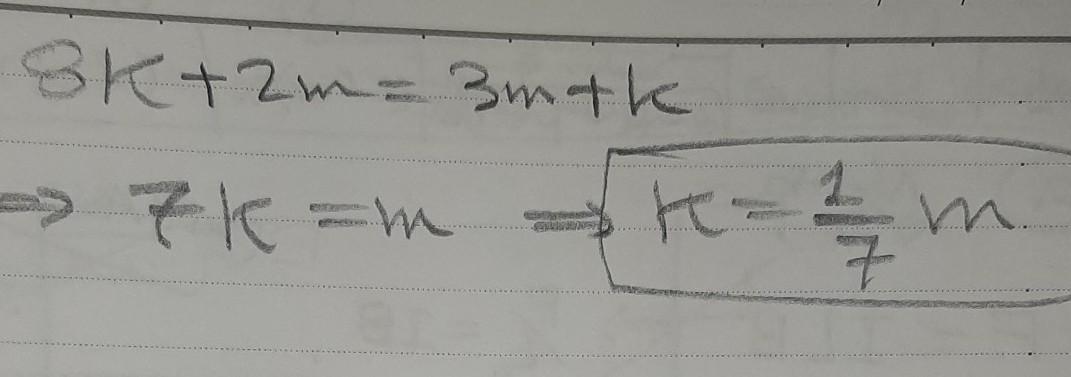 8k+2m=3m+k
⇒ 7k=m ⇒ k=1/7 m